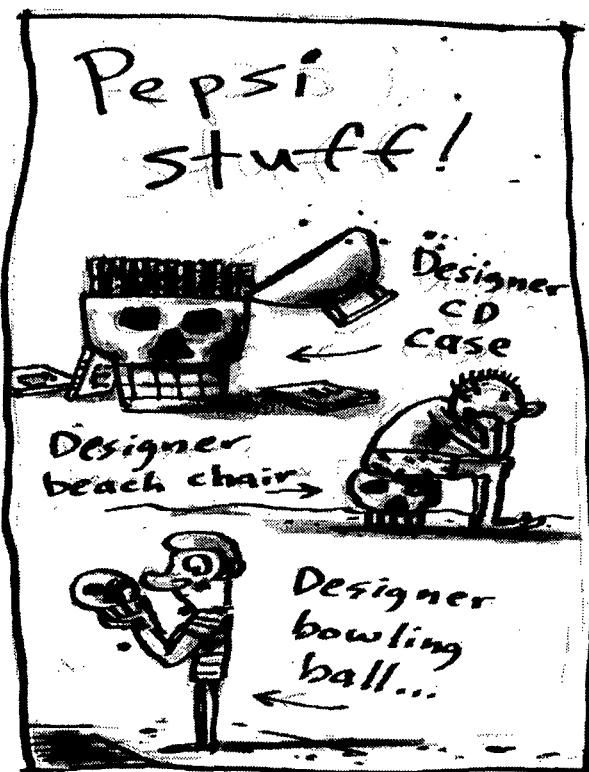 Pepsi
stuff!
Designer
CD
case
Designer
beach chair
Designer
bowling
ball...